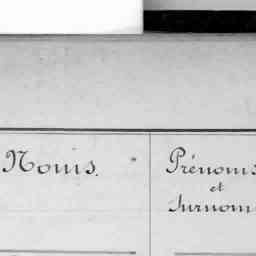 Noms.
Prénoms
et
surnoms